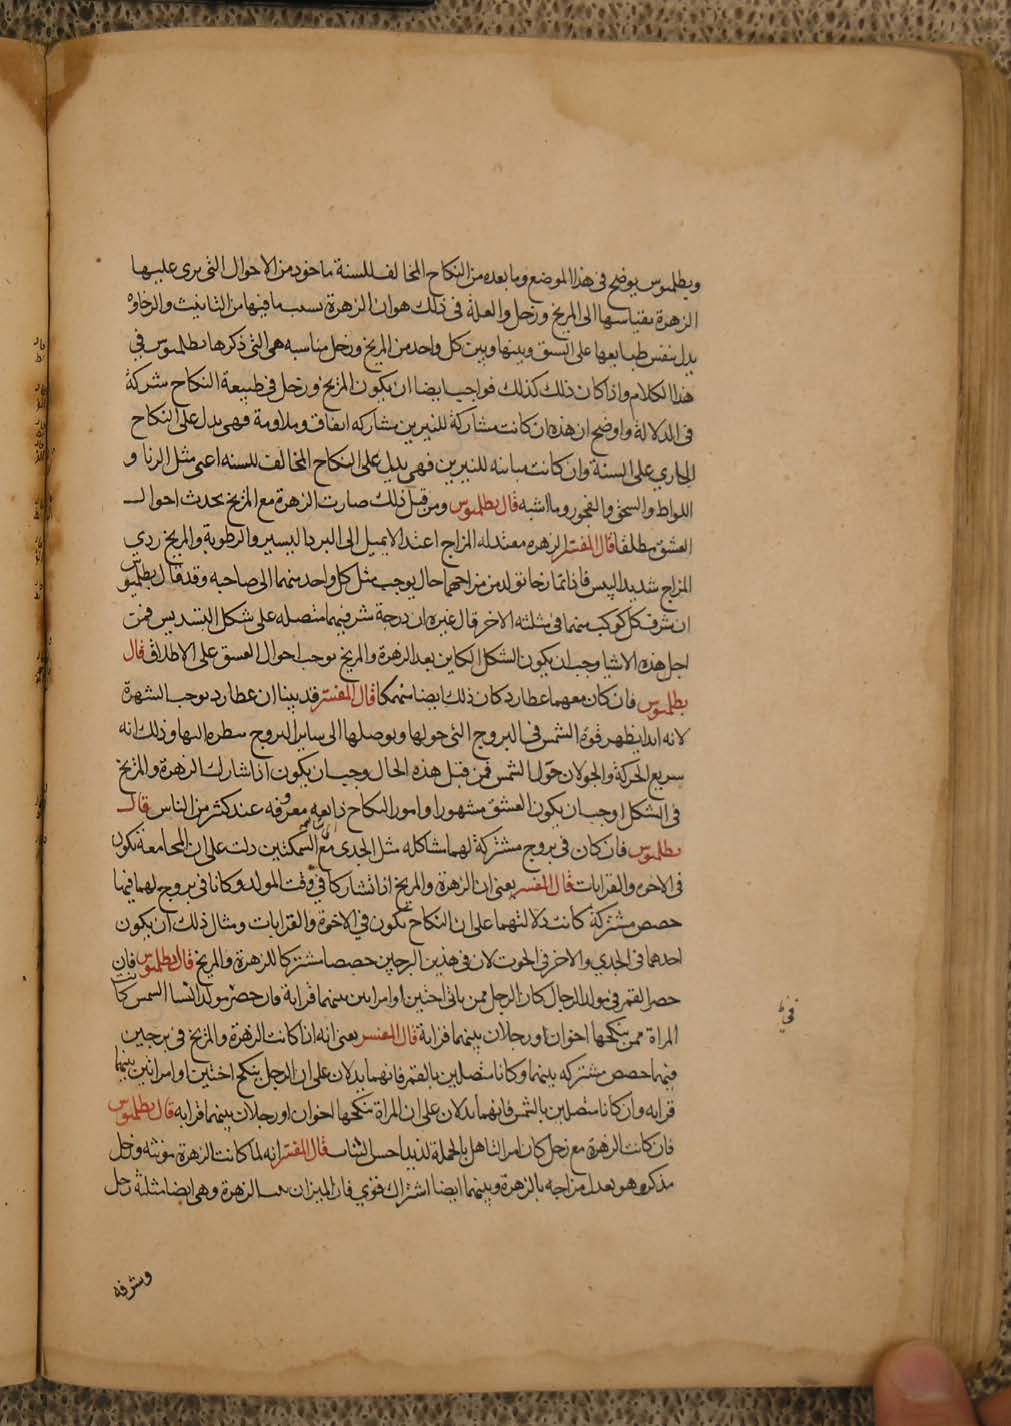 وبطلميوس يوضح في هذا الموضع وما بعده من النكاح المخالف للسنة ماخوذ من الاحوال التي يرى عليها
الزهرة بقياسها الى المريخ وزحل والعلة في ذلك هو ان الزهرة بسبب ما فيها من التانيث والرخاوه
يدل بنفس طبايعها على الشبق وبينها وبين كل واحد من المريخ وزحل مناسبه هي التي ذكرها بطلميوس في
هذا الكلام واذا كان ذلك كذلك فواجب ايضا ان يكون المريخ وزحل في طبيعة النكاح شركة
في الدلالة واوضح ان هذه ان كانت مشاركة للنيرين مشاركه اتفاق وملاومة فهي يدل على النكاح
الجاري على السنة وان كانت مباينه للنيرين فهي يدل على النكاح المخالف للسنه اعني مثل الزنا و
اللواط والسحق والفجور وما اشبه قال بطلميوس ومن قبل ذلك صارت الزهرة مع المريخ يحدث احوال
العشق مطلقا قال المفسر الزهره معتدله المزاج اعتدالا يميل الى البرد اليسير والرطوبة والمريخ ردي
المزاج شديد اليبس فاذا تمازجا تولد من مزاجهما حال يوجب مثل كل واحد منهما الى صاحبه وقد قال بطلميوس
ان شرف كل كوكب منهما في مثلثه الاخر قال غيره ان درجة شرفيهما متصله على شكل التسديس فمن
اجل هذه الاشيا وجب ان يكون الشكل الكاين بعد الزهرة والمريخ يوجب احوال العسق على الاطلاق قال
بطلميوس فان كان معهما عطارد كان ذلك ايضا منهمكا قال المفسر قد بينا ان عطارد يوجب الشهرة
لانه ابدا يظهر قوة الشمس في البروج التي حولها ويوصلها الى ساير البروج سطره اليها وذلك انه
سريع الحركة والجولان حول الشمس فمن قبل هذه الحال وجب ان يكون اذا شارك الزهرة والمريخ
في الشكل اوجب ان يكون العشق مشهورا وامور النكاح ذايعه ومعروفه عند كثر من الناس قال
بطلميوس فان كان في بروج مشتركة لهما مشاكله مثل الجدي مع السمكتين دلت على ان المجامعة تكون
في الاخوه والقرابات قال المفسر يعني ان الزهرة والمريخ اذا تشاركا في وقت المولد وكانا في بروج لهما فيها
حصص مشتركة كانت دلالتهما على ان النكاح تكون في الاخوة والقرابات ومثال ذلك ان يكون
احدهما في الجدي والاخر في الحوت لان في هذين البرجين حصصا مشتركا للزهرة والمريخ قال بطلميوس فان
حضر القمر في مولد الرجال كان الرجل ممن ياتي اختين او امراتين بينهما قرابة وان حضر مولد النسا الشمس كانت
المراة ممن ينكحها اخوان او رجلان بينهما قرابة قال المفسر يعني انه اذا كانت الزهرة والمريخ في برجين
فيهما حصص مشتركه بينهما وكانا متصلين بالقمر فانهما يدلان على ان الرجل ينكح اختين او امراتين بينهما
قرابه وان كانا متصلين بالشمس فانهما يدلان على ان المراة ينكحها اخوان او رجلان بينهما قرابه قال بطلميوس
فان كانت الزهرة مع زحل كان امر التاهل بالجملة لذيذا حسن الثبات قال المفسر انه لما كانت الزهرة مونثه وزحل
مذكر وهو يعدل مزاجه بالزهرة وبينهما ايضا اشتراك قوي فان الميزان بيت الزهرة وهي ايضا مثلثة زحل
وشرفه